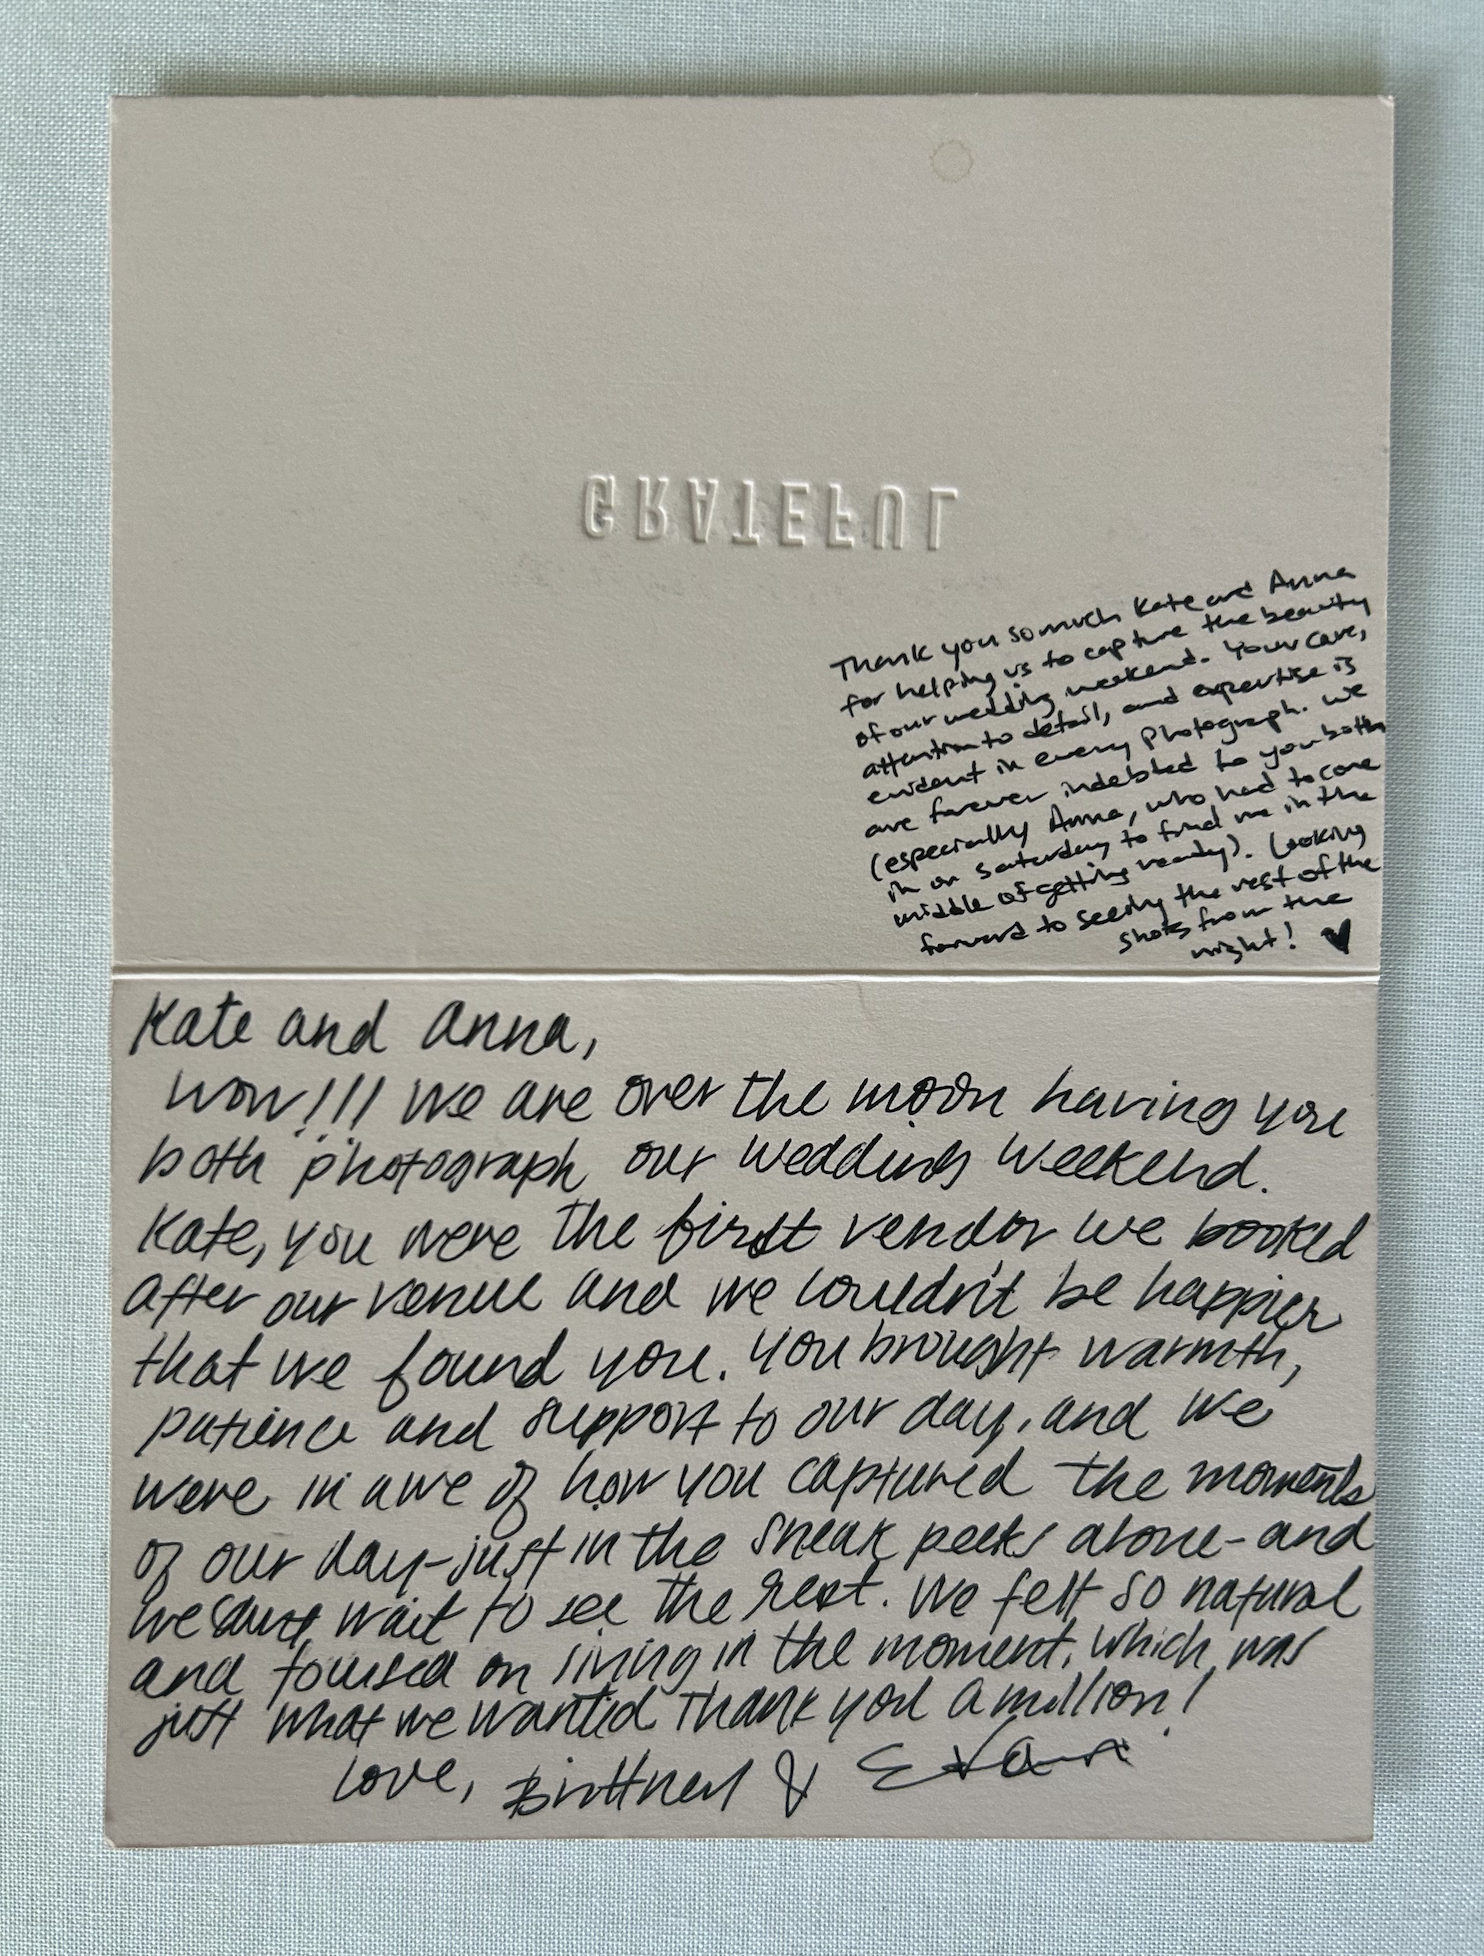 GRATEFUL
Thank you so much Kate and Anna
for helping us to capture the beauty
of our wedding weekend. Your care,
attention to detail, and expertise is
evident in every photograph. We
are forever indebted to you both
(especially Anna, who had to come
in on Saturday to find me in the
middle of getting ready). Looking
forward to seeing the rest of the
shots from the
night! ♥
Kate and Anna,
Wow!!! We are over the moon having you
both photograph our wedding weekend.
Kate, you were the first vendor we booked
after our venue and we couldn't be happier
that we found you. You brought warmth,
patience and support to our day, and we
were in awe of how you captured the moments
of our day-just in the sneak peeks alone-and
we can't wait to see the rest. We felt so natural
and focused on living in the moment, which was
just what we wanted. Thank you a million!
Love, Brittney & Evan